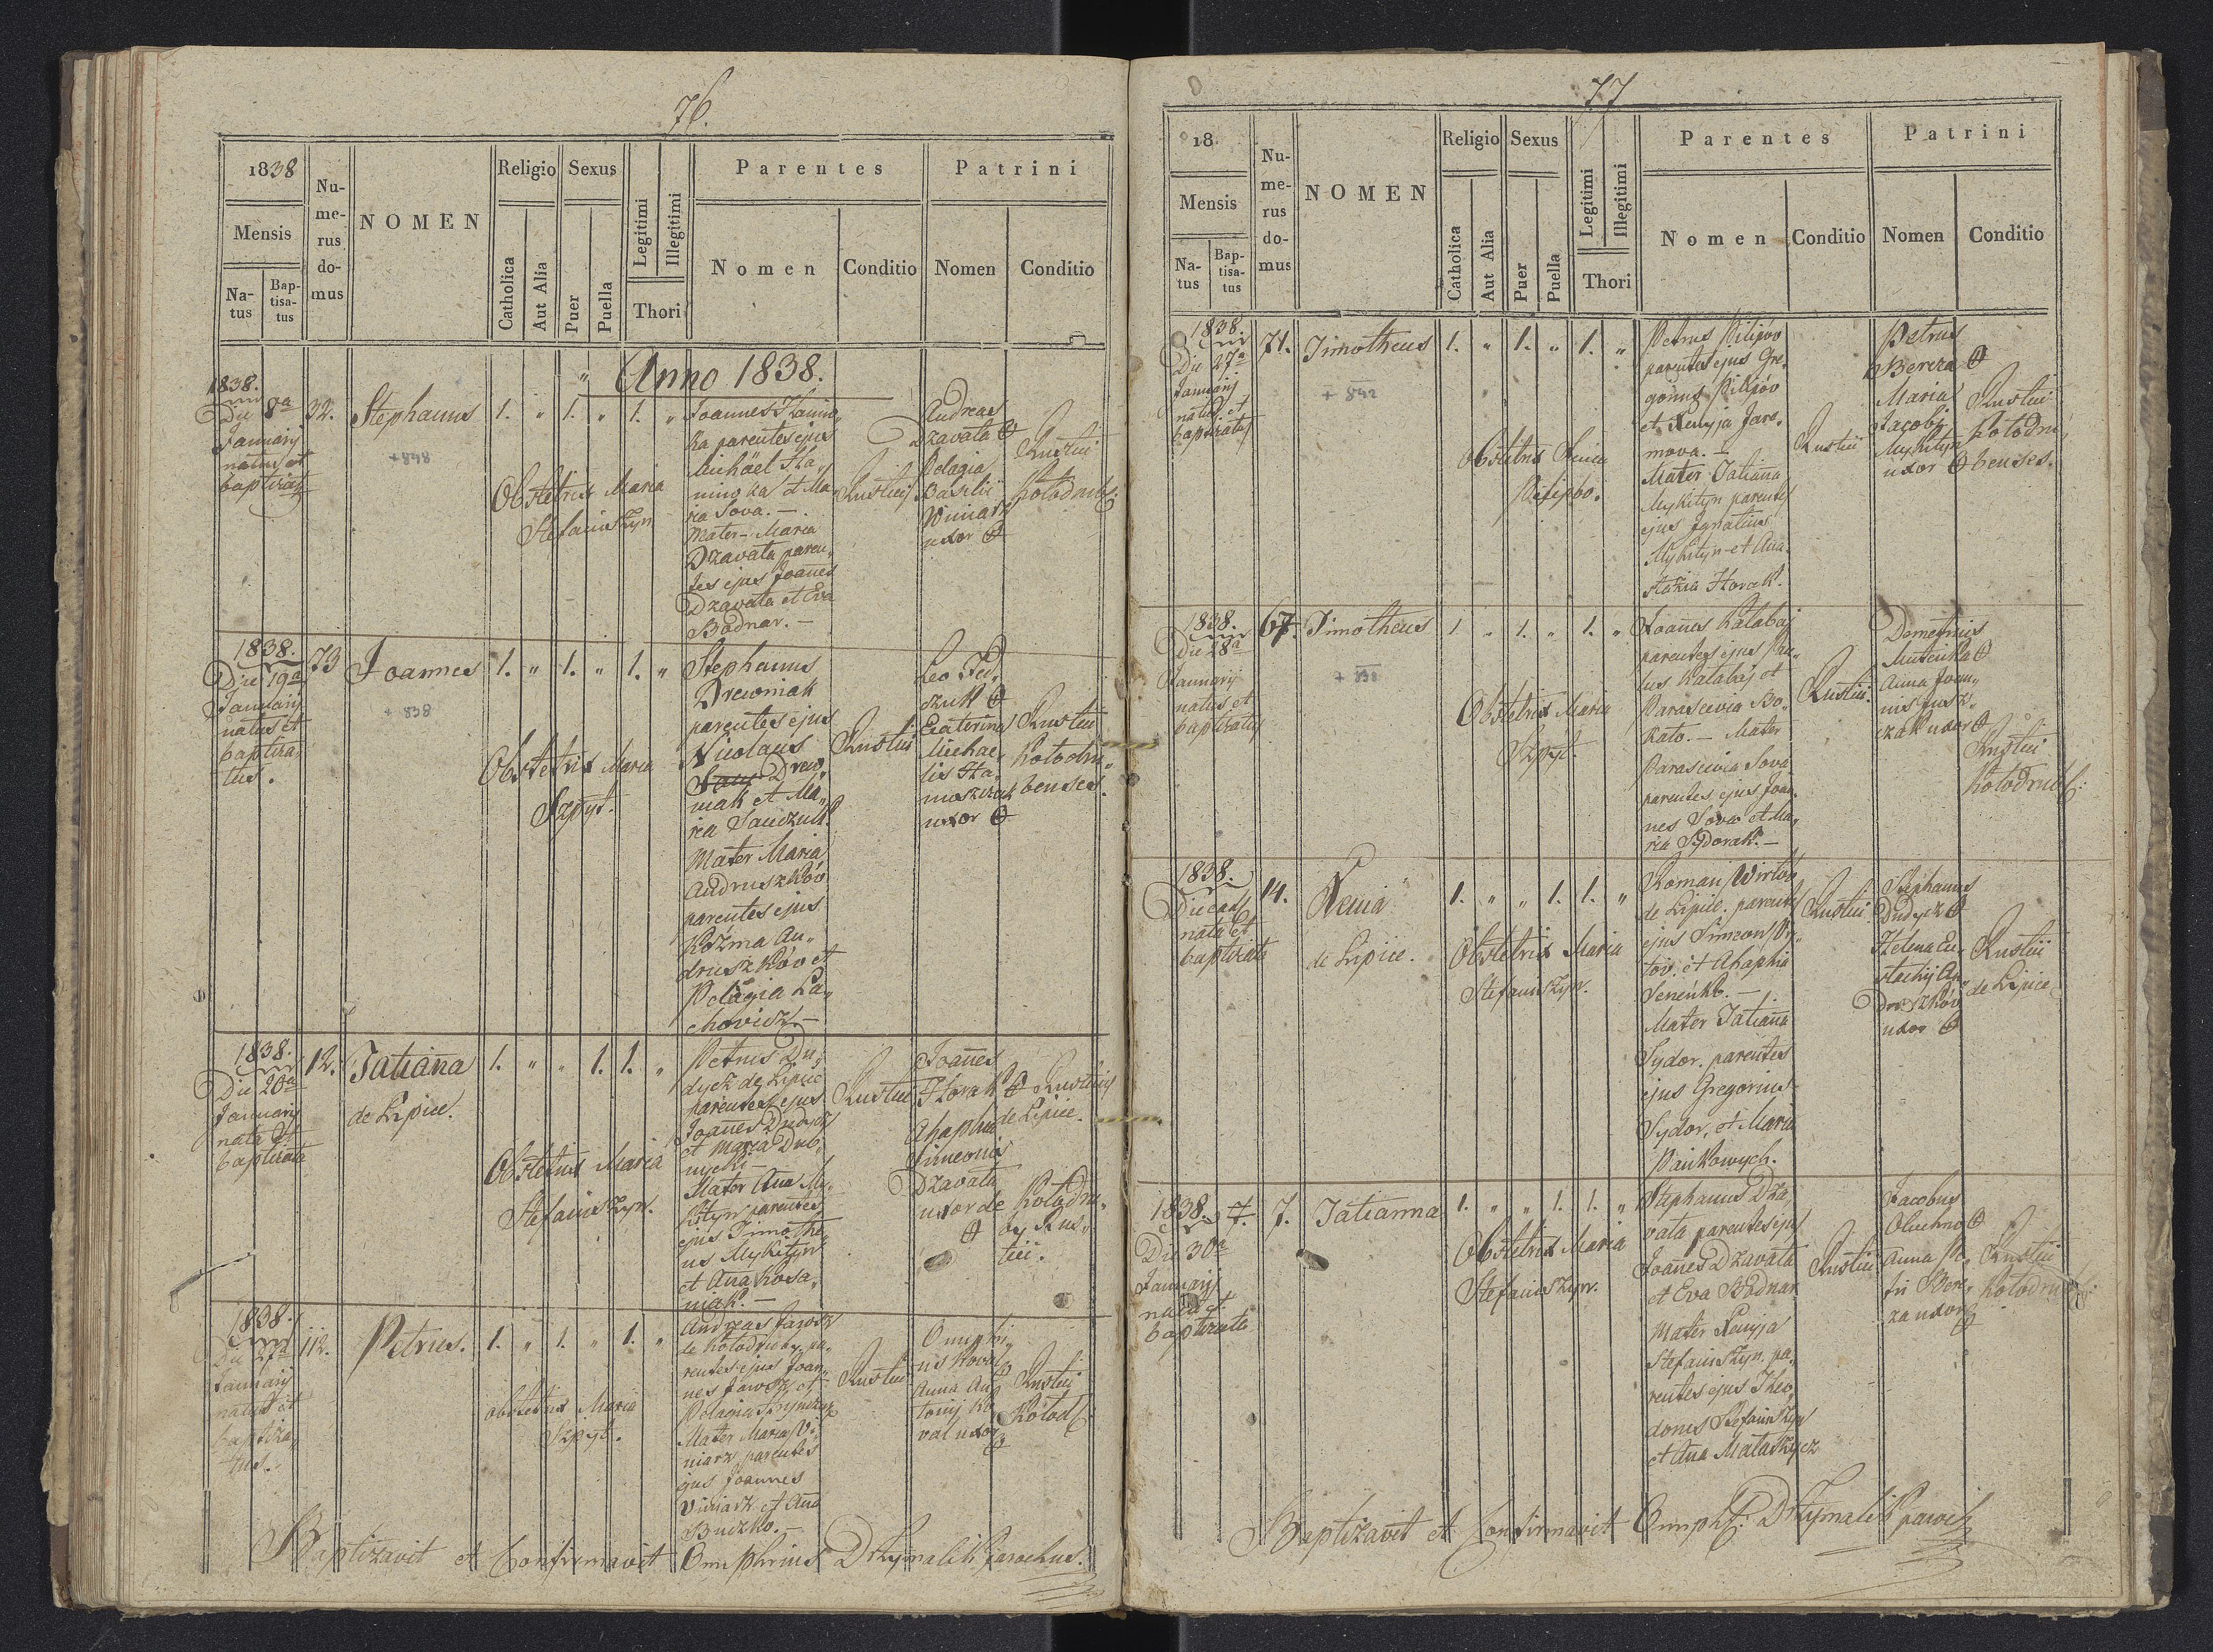 76.
1838
Mensis
Na-
tus
Bap-
tisa-
tus
Nu-
me-
rus
do-
mus
NOMEN
Religio
Catholica
Aut Alia
Sexus
Puer
Puella
Legitimi
Illegitimi
Thori
Parentes
Nomen
Conditio
Patrini
Nomen
Conditio
Anno 1838.
1838.
Die 8a
Januarij
natus et
baptizatus
32.
Stephanus
+848
1. " 1. " 1. "
Obstetrix Maria
Stefaniszyn
Joannes
ka parentes ejus
Michäel Ha,
nino ka et Ma,
ria Sova. —
Mater - Maria
Dzavata paren,
tes ejus Joannes
Dzavata et Eva
Bodnar. —
Rustici
Andreas
Dzavata
Pelagia
Basilii
Winiarz
uxor
Rustici
Kołodrub:
1838.
Die 19a
Januarij
natus et
baptiza,
tus.
73
Joannes
+ 838
1. " 1. " 1. "
Obstetrix Maria
Szpyt.
Stephanus
Drewniak
parentes ejus
Nicolaus
Drew,
niak et Ma,
ria Sawczuk
Mater Maria
Andruszków
parentes ejus
Kozma An,
druszków et
Pelagia La,
chovicz. —
Rustici
Leo Fed,
czuk
Caterina
Michae,
lis Ha,
moszczak
uxor
Rustici
Kołodru,
benses.
1838.
Die 20a
Januarij
nata et
baptizata
12.
Tatiana
de Lipice.
1. " " 1. 1. "
Obstetrix Maria
Stefaniszyn.
Petrus Du,
dycz de Lipice
parentes ejus
Joannes Dudycz
et Maria Dub,
nycki —
Mater Ana My,
kityn parentes
ejus Timothe,
us Mykityn
et Ana Kosa,
niak. —
Rustici
Joannes
Horak
Ahaphia
Simeonis
Dzavata
uxor de
Rustici
de Lipice.
Kołodru,
by Rus,
tici.
1838.
Die 27a
Januarij
natus et
baptiza,
tus.
112.
Petrus.
1. " 1. " 1. "
obstetrix Maria
Szpyt.
Andreas Jarosz
de Kołodruby pa,
rentes ejus Joan,
nes Jarosz et
Pelagia
Mater Maria Vi,
niarz parentes
ejus Joannes
Viniarz et Ana
Buczko. —
Rustici
Onuphri,
us Koval
Anna An,
tonij Ko,
val uxor
Rustici
Kołod:
Baptizavit et Confirmavit Onuphrius Drymalik parochus.
77
18
Mensis
Na-
tus
Bap-
tisa-
tus
Nu-
me-
rus
do-
mus
NOMEN
Religio
Catholica
Aut Alia
Sexus
Puer
Puella
Legitimi
Illegitimi
Thori
Parentes
Nomen
Conditio
Patrini
Nomen
Conditio
1838.
Die 27a
Januarij
natus et
baptizatus
71.
Timotheus
+ 842
1. " 1. " 1. "
Obstetrix
Petrus Pilipów
parentes ejus Gre,
gorius Pilipów
et Xenyja Jare,
mova. —
Mater Tatiana
Mykityn parentes
ejus Ignatius
Mykityn et Ana,
stazia Horak.
Rustici
Petrus
Bereza
Maria
Jacobi
Mykityn
uxor
Rustici
Kołodru,
benses.
1838.
Die 28a
Januarij
natus et
baptizatus
67.
Timotheus
+ 838
1 " 1. " 1. "
Obstetrix Maria
Szpyt.
Joannes Katabaj
parentes ejus Pau,
lus Katabaj et
Parascevia Bo,
kało. — Mater
Parascevia Sova
parentes ejus Joan,
nes Sova et Ma,
ria Sydorak. —
Rustici.
Demetrius
Muteńka
Anna Joan,
nis Jusz,
czak uxor
Rustici
Kołodrub:
1838.
Die ead
nata et
baptizata
14.
Xenia
de Lipice.
1. " " 1. 1. "
Obstetrix Maria
Stefaniszyn.
Roman Wirtów
de Lipic. parentes
ejus Simeon Vir,
tóv. et Ahaphia
Seneńko. —
Mater Tatiana
Sydor. parentes
ejus Gregorius
Sydor, et Maria
Pańkowych.
Rustici
Stephanus
Dudycz
Helena Eu,
stachij An,
druszków
uxor
Rustici
de Lipice
1838.
Die 30a
Januarij
nata et
baptizata
7.
Tatianna
1. " " 1. 1. "
Obstetrix Maria
Stefaniszyn.
Stephanus Dza,
vata parentes ejus
Joannes Dzavata
et Eva Bodnar
Mater Xenyja
Stefaniszyn. pa,
rentes ejus Theo,
dorus Stefaniszyn
et Ana Mataszycz
Rustici
Jacobus
Oluchno
Anna Pe,
tri Bere,
za uxor
Rustici
Kołodrub:
Baptizavit et Confirmavit Onuph: Drymalik paroch